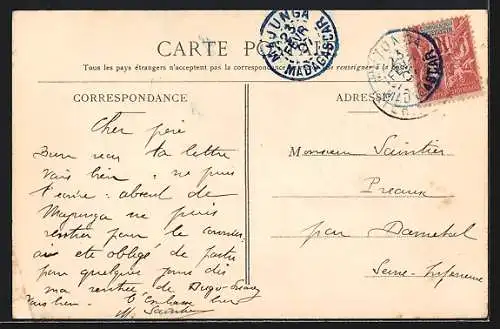 CARTE POSTALE
Tous les pays étrangers n'acceptent pas la
se renseigner à la
MAJUNGA
23
MADAGASCAR
CORRESPONDANCE
ADRESSE
Cher père
Bien reçu ta lettre
Vais bien ne puis
t'écrire absent de
Majunga ne puis
rentrer pour le courrier
ai été obligé de partir
pour quelques jours dès
ma rentrée de Diego-Suarez
Vais bien. T'embrasse
M. Saintier
Monsieur Saintier
Préaux
par Darnétal
Seine-Inférieure